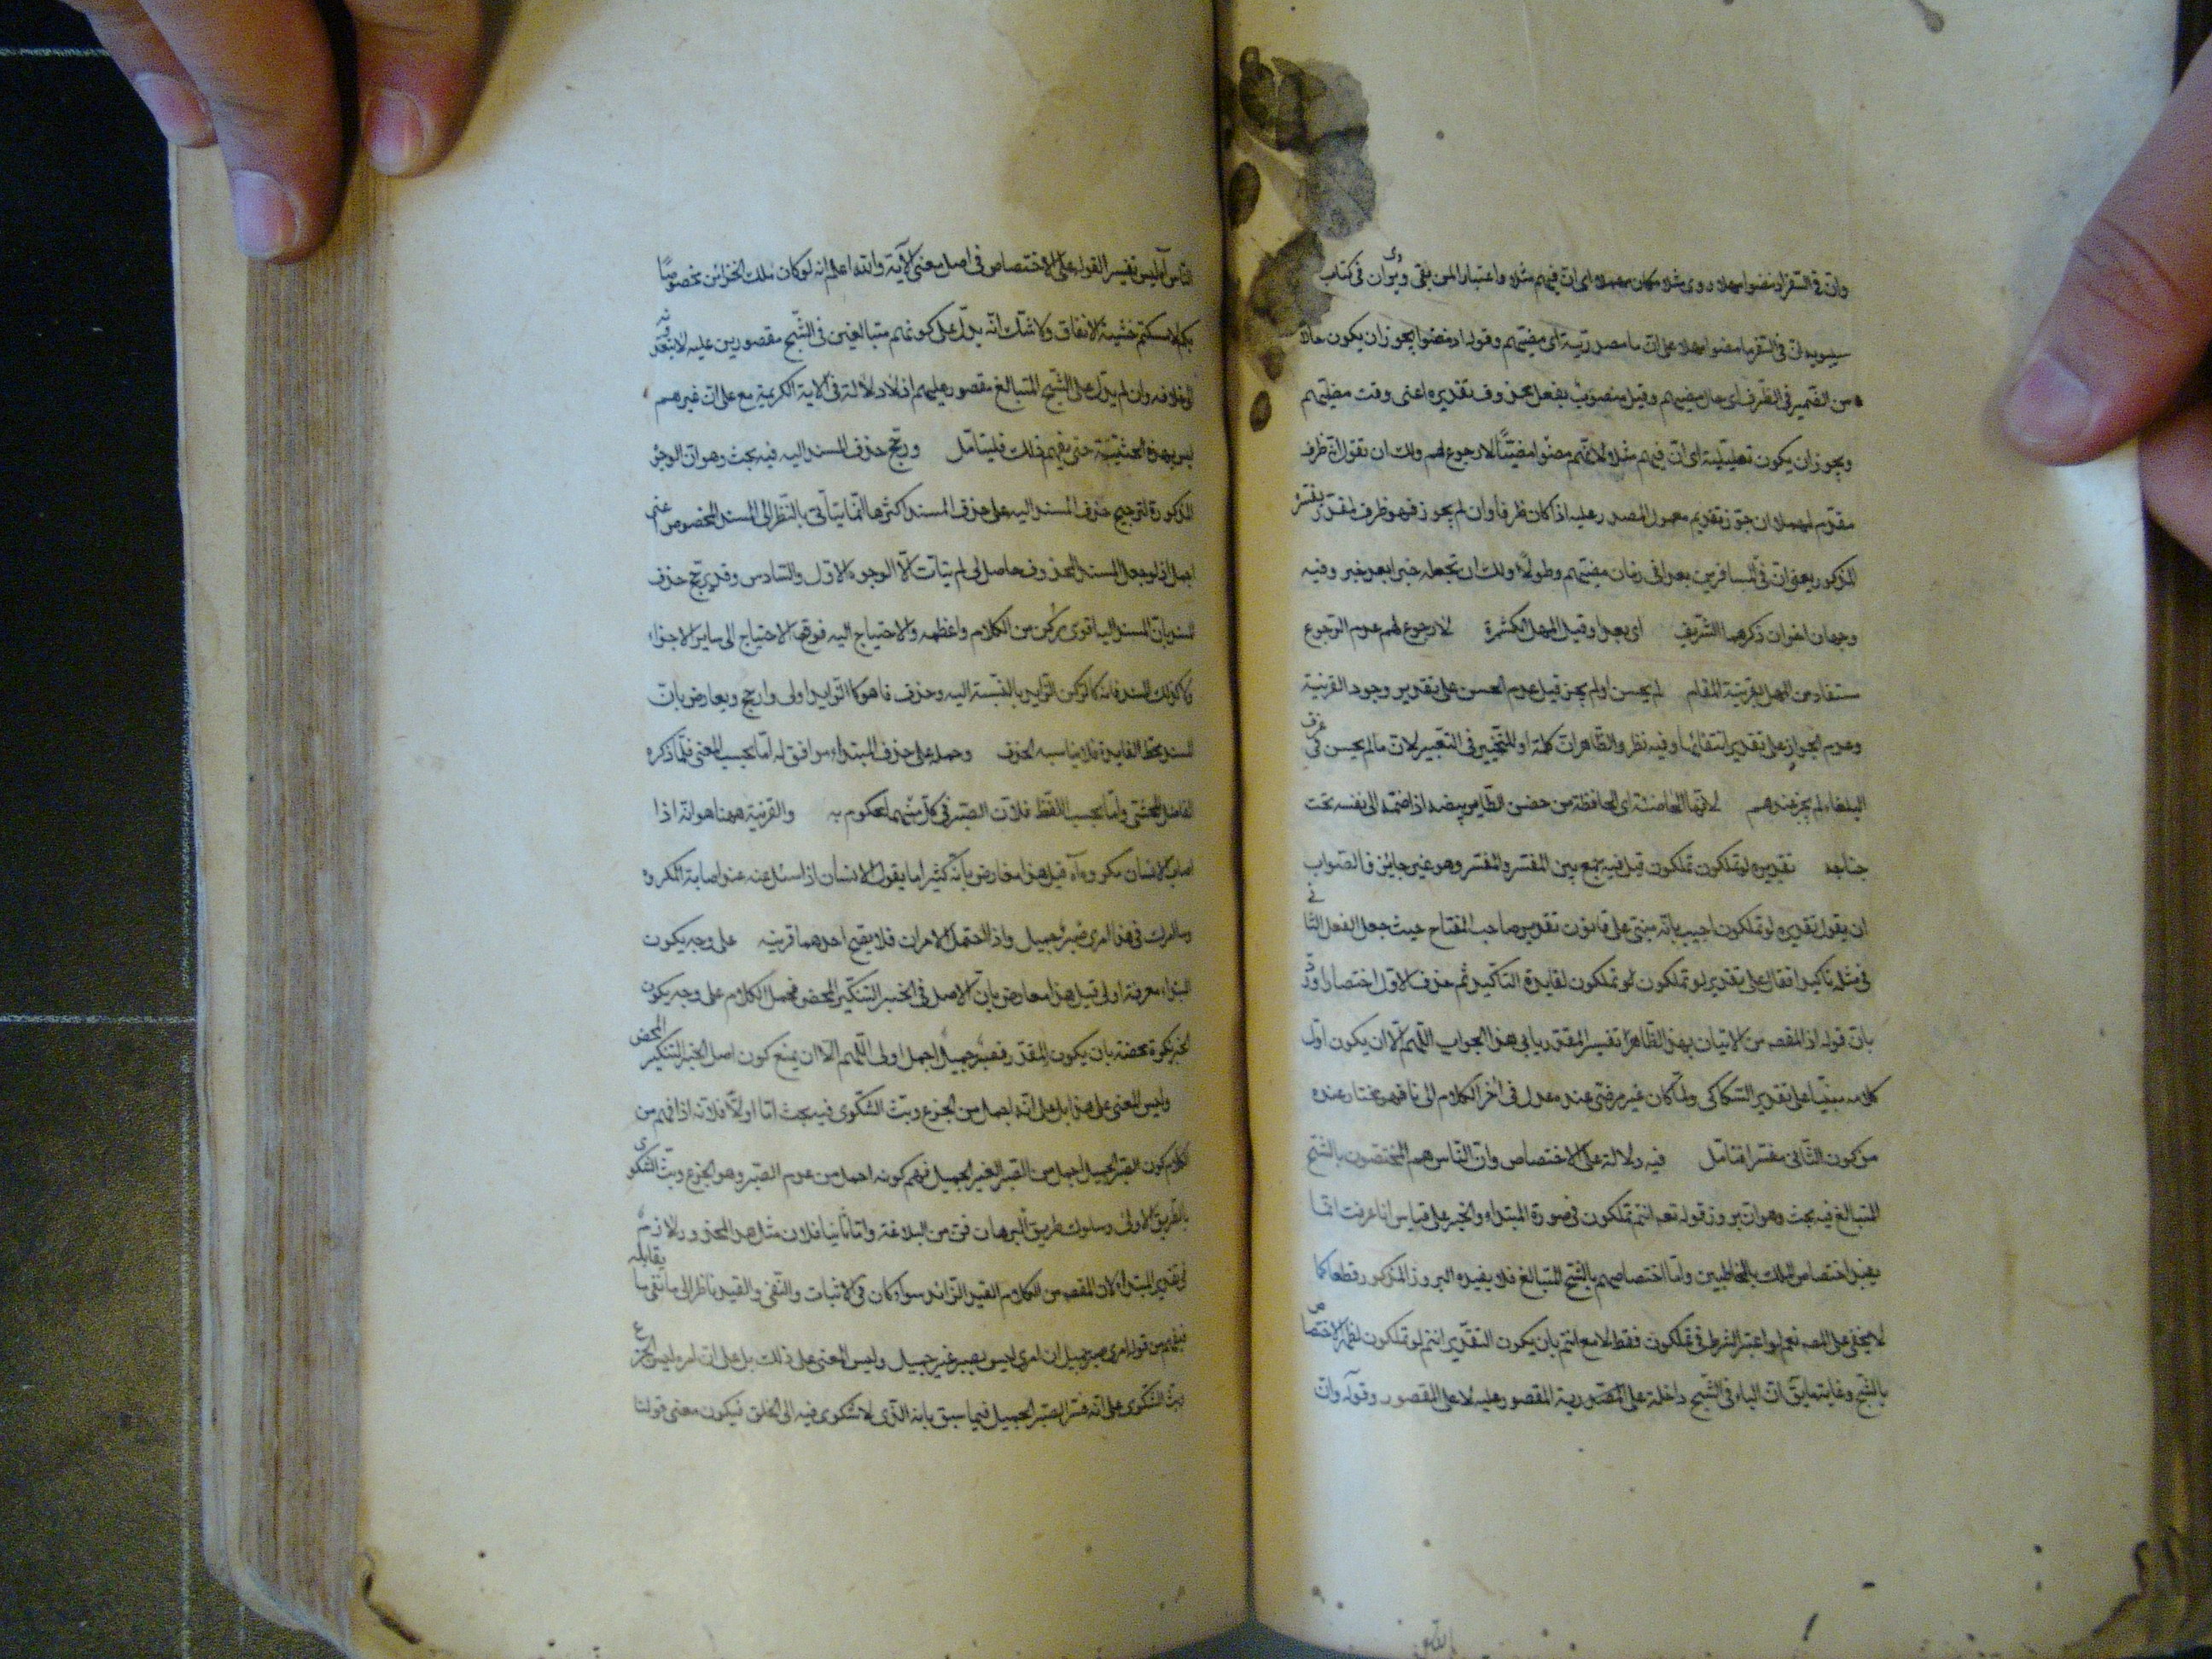 وان في السفر اذ مضوا مهلا روى مثلا مكان مهلا اى ان فيهم مثلا واعتبارا لمن بقى ويروى ان في كتاب
سيبويه ان في السفر ما مضوا مهلا على ان ما مصدرية اى مضيهم وقوله اذ مضوا يجوز ان يكون حالا
من الضمير في الظرف اى حال مضيهم وقيل منصوب بفعل محذوف تقديره اعنى وقت مضيهم
ويجوز ان يكون تعليلية اى ان فيهم مهلا لانهم مضوا مضيا لا رجوع لهم ولك ان تقول انه ظرف
مقدم لمهلا ان جوز تقديم معمول المصدر عليه اذا كان ظرفا وان لم يجوز فهو ظرف لمقدر يفسره
المذكور يعنى ان في المسافرين بعدا في زمان مضيهم وطولا ولك ان تجعله خبرا بعد خبر وفيه
وجهان اخران ذكرهما الشريف اى بعدا وقيل المهل الكثرة لا رجوع لهم عدم الرجوع
مستفاد من المهل بقرينة المقام لم يحسن او لم يجز قيل عدم الحسن على تقدير وجود القرينة
وعدم الجواز على تقدير انتفائها وفيه نظر والظاهر ان كلمة او للتخيير في التعبير لان ما لم يحسن في عرف
البلغاء لم يجز عندهم لانها الحاضنة اى الحافظة من حضن الطاير بيضه اذا ضمه الى نفسه تحت
جناحه تقديره لو تملكون تملكون قيل فيه جمع بين المفسر والمفسر وهو غير جايز فالصواب
ان يقول تقديره لو تملكون اجيب بانه مبنى على قانون تقدير صاحب المفتاح حيث جعل الفعل الثانى
في مثله تاكيدا فقال على تقدير لو تملكون لو تملكون لفايدة التاكيد ثم حذف الاول اختصارا ورد
بان قوله اذ المقصه من الاتيان بهذا الظاهر تفسير المقدر يابى هذا الجواب اللهم الا ان يكون اول
كلامه مبنيا على تقدير السكاكى ولما كان غير مرضى عنده عدل في اخر الكلام الى ما هو مختار عنده
من كون الثانى مفسرا فتامل فيه دلالة على الاختصاص وان الناس هم المختصون بالشح
المتبالغ فيه بحث وهو ان بروز قوله تعه انتم تملكون في صورة المبتداء والخبر على قياس انا عرفت انما
يفيد اختصاص الملك بالمخاطبين واما اختصاصهم بالشح المتبالغ فلا يفيده البروز المذكور قطعا كما
لا يخفى على المصه نعم لو اعتبر الشرط في تملكون فقط لا مع انتم بان يكون التقدير انتم لو تملكون لظهر الاختصاص
بالشح وغاية ما يق ان الباء في الشح داخلة على المقصور عليه لا على المقصور وقوله وان
الناس اه ليس تفسير القوله على الاختصاص في اصل معنى الآية والله اعلم انه لو كان ملك الخزائن مخصوصا
بكم لامسكتم خشية الانفاق ولا شك انه يدل على كونهم متبالغين في الشح مقصورين عليه لا
الى خلافه وان لم يدل على الشح المتبالغ مقصور عليهم اذ لا دلالة في الاية الكريمة مع على ان غيرهم
ليس بهذه الحيثية حتى يفهم ذلك فليتامل ورجح حذف المسند اليه فيه بحث وهو ان الوجوه
المذكورة لترجيح حذف المسند اليه على حذف المسند اكثرها انما يتاتى بالنظر الى المسند المخصوص اعنى
اجمل اذ لو جعل المسند المحذوف حاصل لى لم يتات الا الوجوه الاول والسادس وقد يرجح حذف
المسند بان المسند اليه اقوى ركن من الكلام واعظمه والاحتياج اليه فوق الاحتياج الى ساير الاجزاء
ولا كذلك المسند فانه كالركن الزايد بالنسبة اليه وحذف ما هو كالزايد اولى وارجح ويعارض بان
المسند محط الفايدة فلا يناسبه الحذف وحمله على حذف المبتداء موافق له اما بحسب المعنى فلما ذكره
الفاضل المحشى واما بحسب اللفظ فلان الصبر في كل منهما محكوم به والقرينة ههنا هو انه اذا
اصاب الانسان مكروه اه قيل هذا معارض بانه كثيرا ما يقول الانسان اذا سئل عنه عند اصابة المكروه
وما امرك في هذا امرى صبر جميل واذا احتمل الامران فلا يصح احدهما قرينة على وجه يكون
المبتداء معرفة اولى قيل هذا معارض بان الاصل في الخبر التنكير المحض فحمل الكلام على وجه يكون
الخبر نكرة محضة بان يكون المقدر فصبر جميل اجمل اولى اللهم الا ان يمنع كون اصل الخبر التنكير المحض
وليس المعنى على هذا بل على انه اجمل من الجزع وبث الشكوى فيه بحث اما اولا فلانه اذا فهم من
الكلام كون الصبر الجميل اجمل من الصبر الغير الجميل فهم كونه اجمل من عدم الصبر وهو الجزع وبث الشكوى
بالطريق الاولى وسلوك طريق البرهان فن من البلاغة واما ثانيا فلان مثل هذا المحذور لازم
في تقدير المبتداء لان المقصه من الكلام القيد الزائد سواء كان في الاثبات والنفى والقيد ناظر الى ما نفى ما يقابله
فيفهم من قوله امرى صبر جميل ان امرى ليس بصبر غير جميل وليس المعنى على ذلك بل على ان امره ليس الجزع
وبث الشكوى على انه فسر الصبر الجميل فيما سبق بانه الذى لا شكوى فيه الى الخلق فيكون معنى قولنا